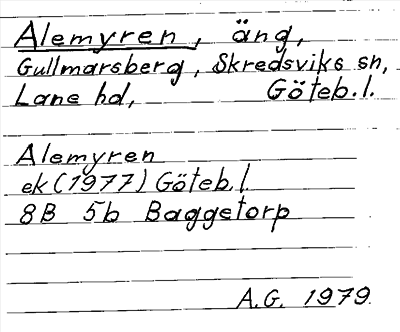 Alemyren, äng,
Gullmarsberg, Skredsviks sn,
Lane hd, Göteb.l.
Alemyren
ek (1977) Göteb.l.
8B 5b Baggetorp
A.G. 1979.